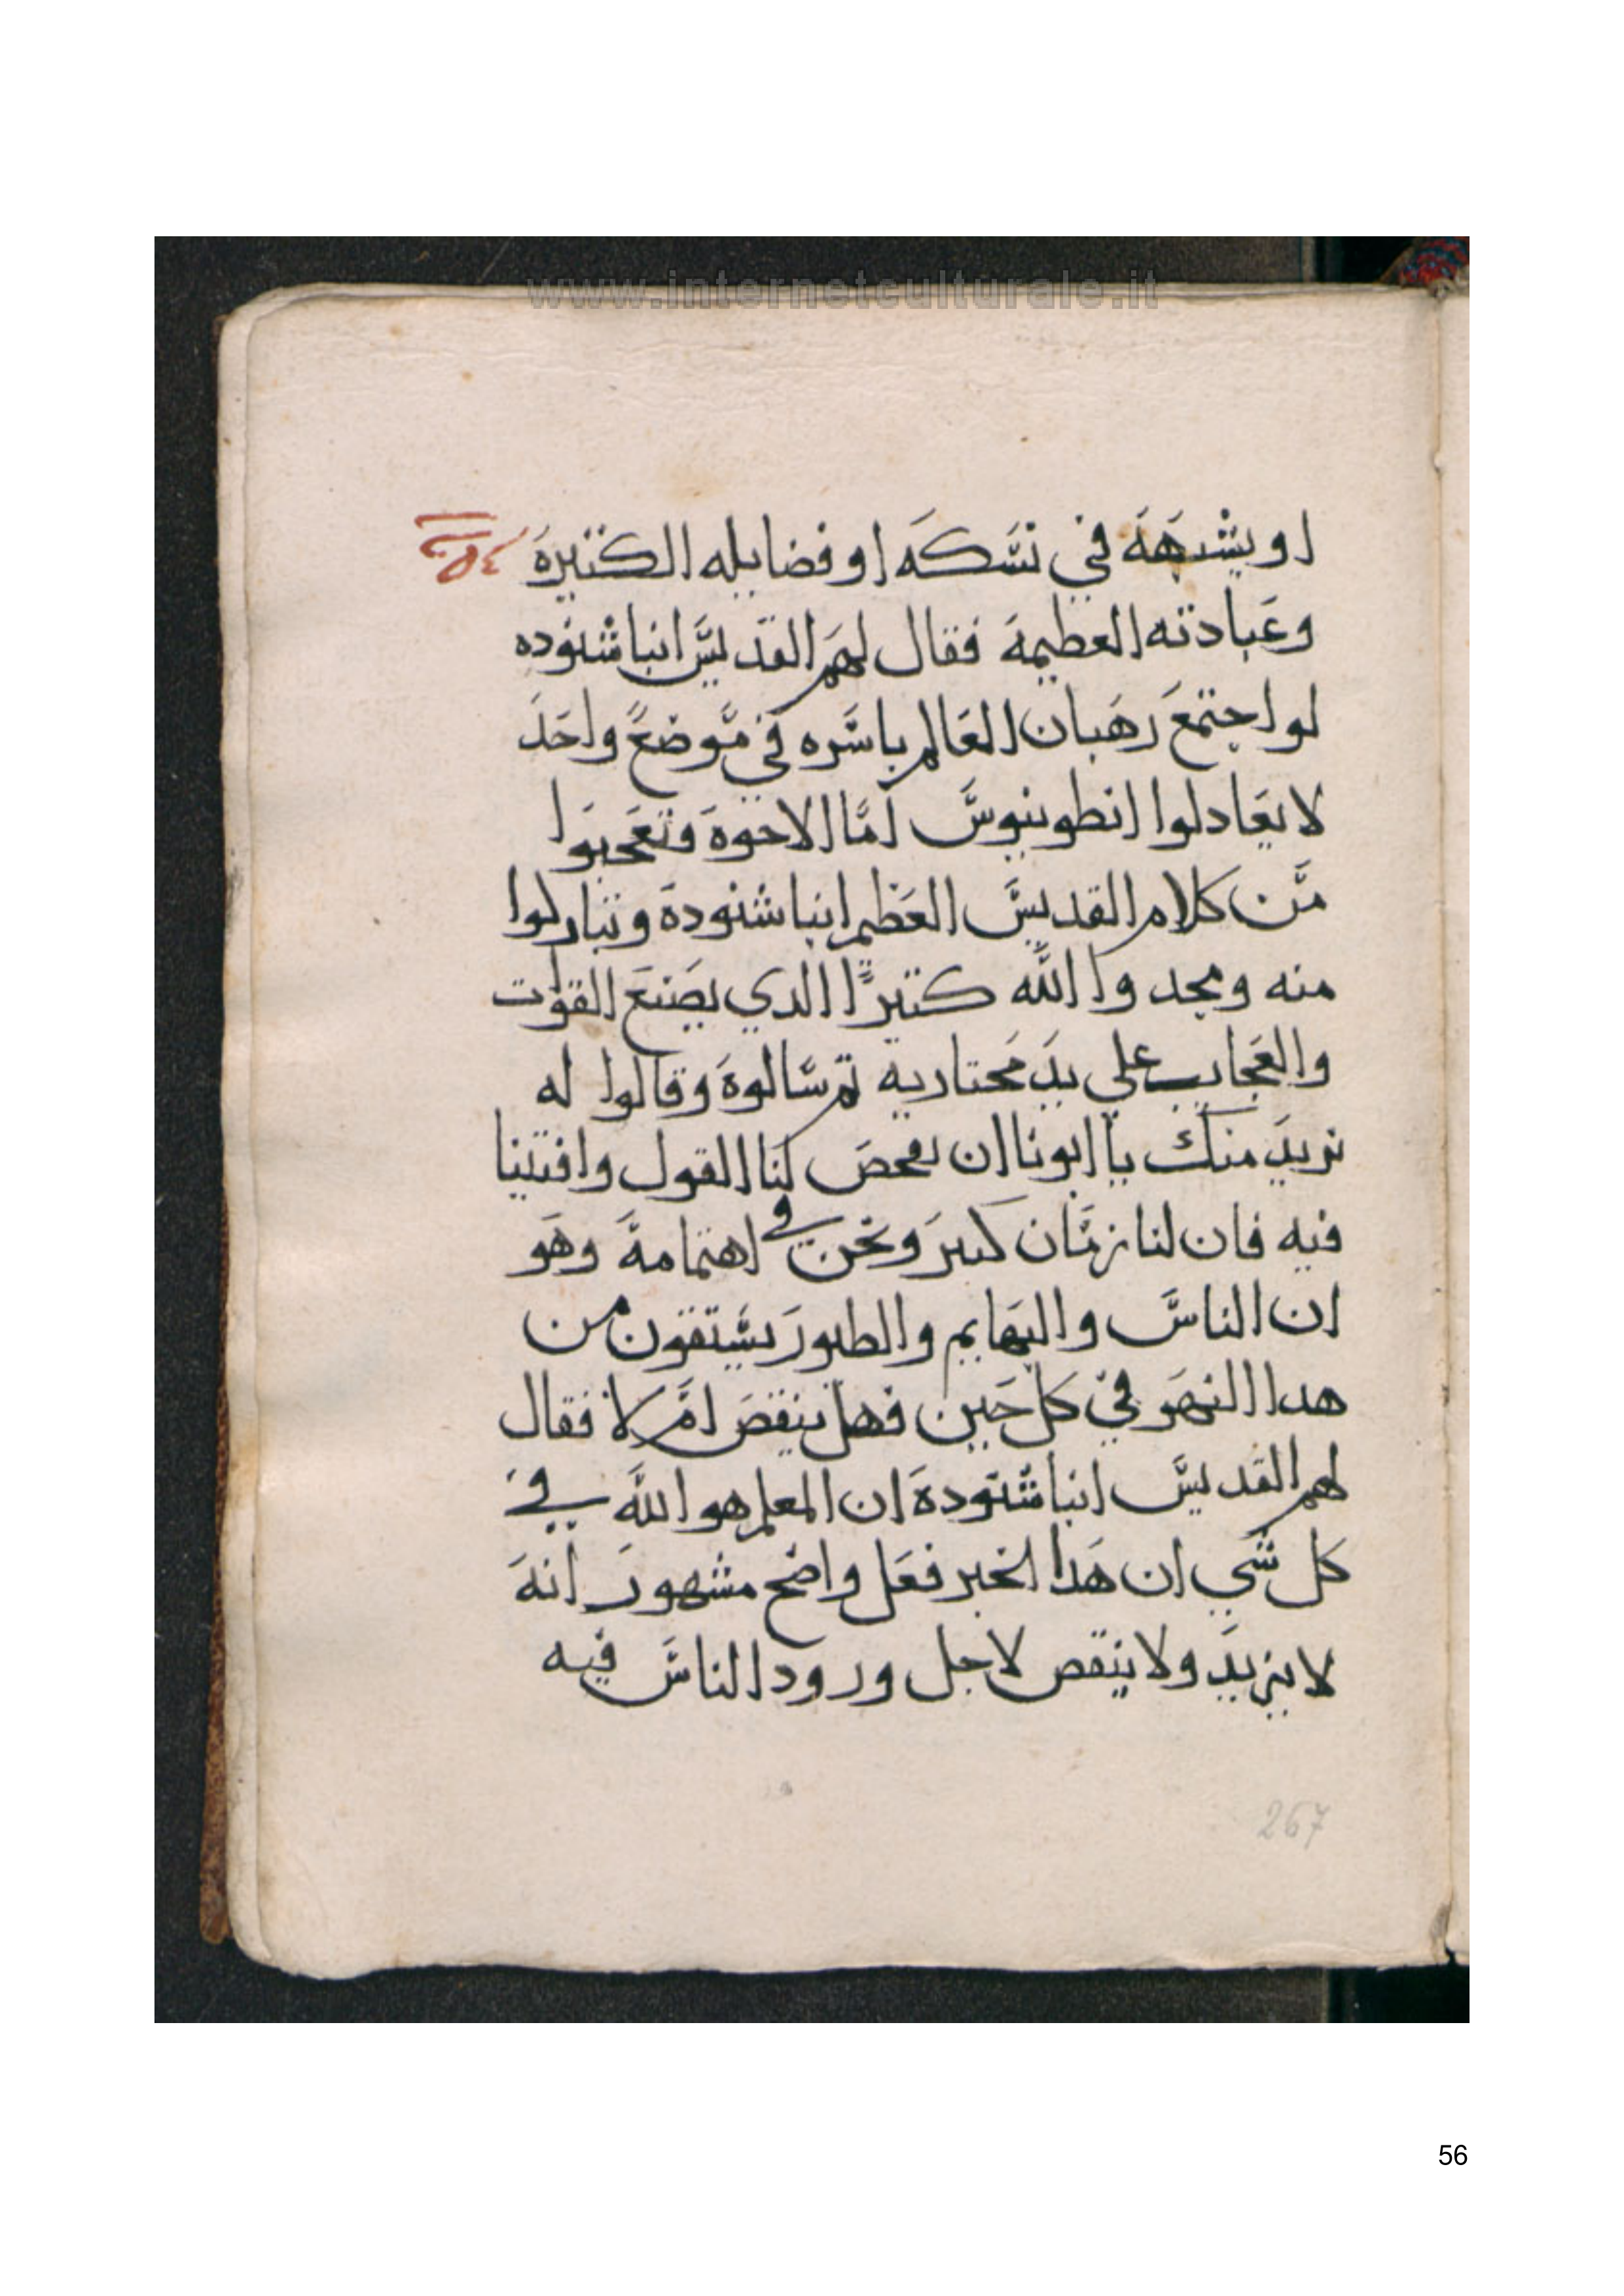 www.internetculturale.it
او يشبهه في نسكه او فضايله الكتيره
وعبادته العطيمه فقال لهم القديس انبا شنوده
لو اجتمع رهبان العالم باسره في موضع واحد
لا يعادلوا انطونيوس اما الاخوه وتعجبوا
من كلام القديس العظيم انبا شنوده وتباركوا
منه ومجدوا الله كتيرًا الدي يصنع القوات
والعجايب علي يد مختاريه تم سالوه وقالوا له
نريد منك يا ابونا ان تفحص لنا القول وافتينا
فيه فان لنا زمان كبير ونحن في اهتمامه وهو
ان الناس والبهايم والطيور يستقون من
هدا النهر في كل حين فهل ينقص ام لا فقال
لهم القديس انبا شنوده ان المعلم هو الله في
كل شي ان هدا الخبر فعل واضح مشهور انه
لا يزيد ولا ينقص لاجل ورود الناس فيه
267
56